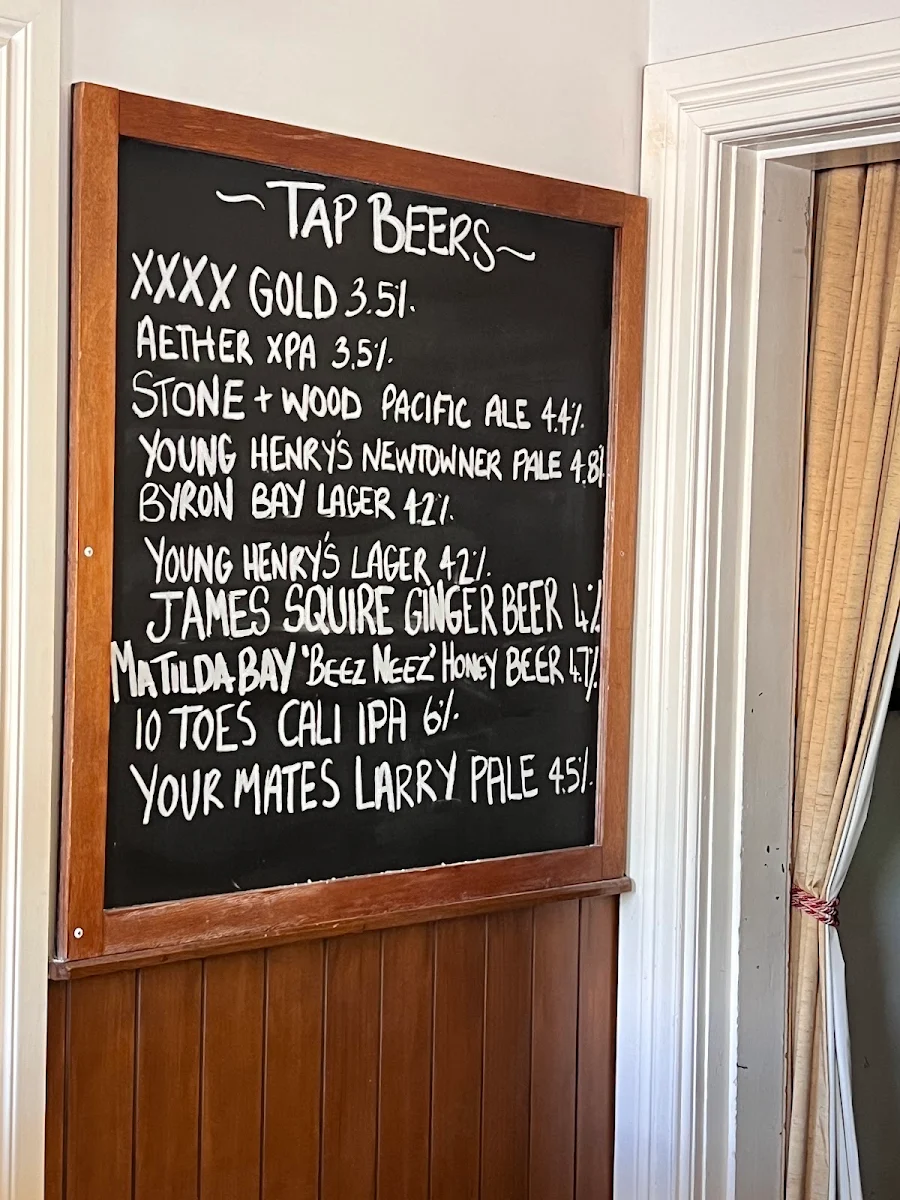 ~TAP BEERS~
XXXX GOLD 3.5%
AETHER XPA 3.5%
STONE + WOOD PACIFIC ALE 4.4%
YOUNG HENRY'S NEWTOWNER PALE 4.8%
BYRON BAY LAGER 4.2%
YOUNG HENRY'S LAGER 4.2%
JAMES SQUIRE GINGER BEER 4%
MATILDA BAY 'BEEZ NEEZ' HONEY BEER 4.7%
10 TOES CALI IPA 6%
YOUR MATES LARRY PALE 4.5%